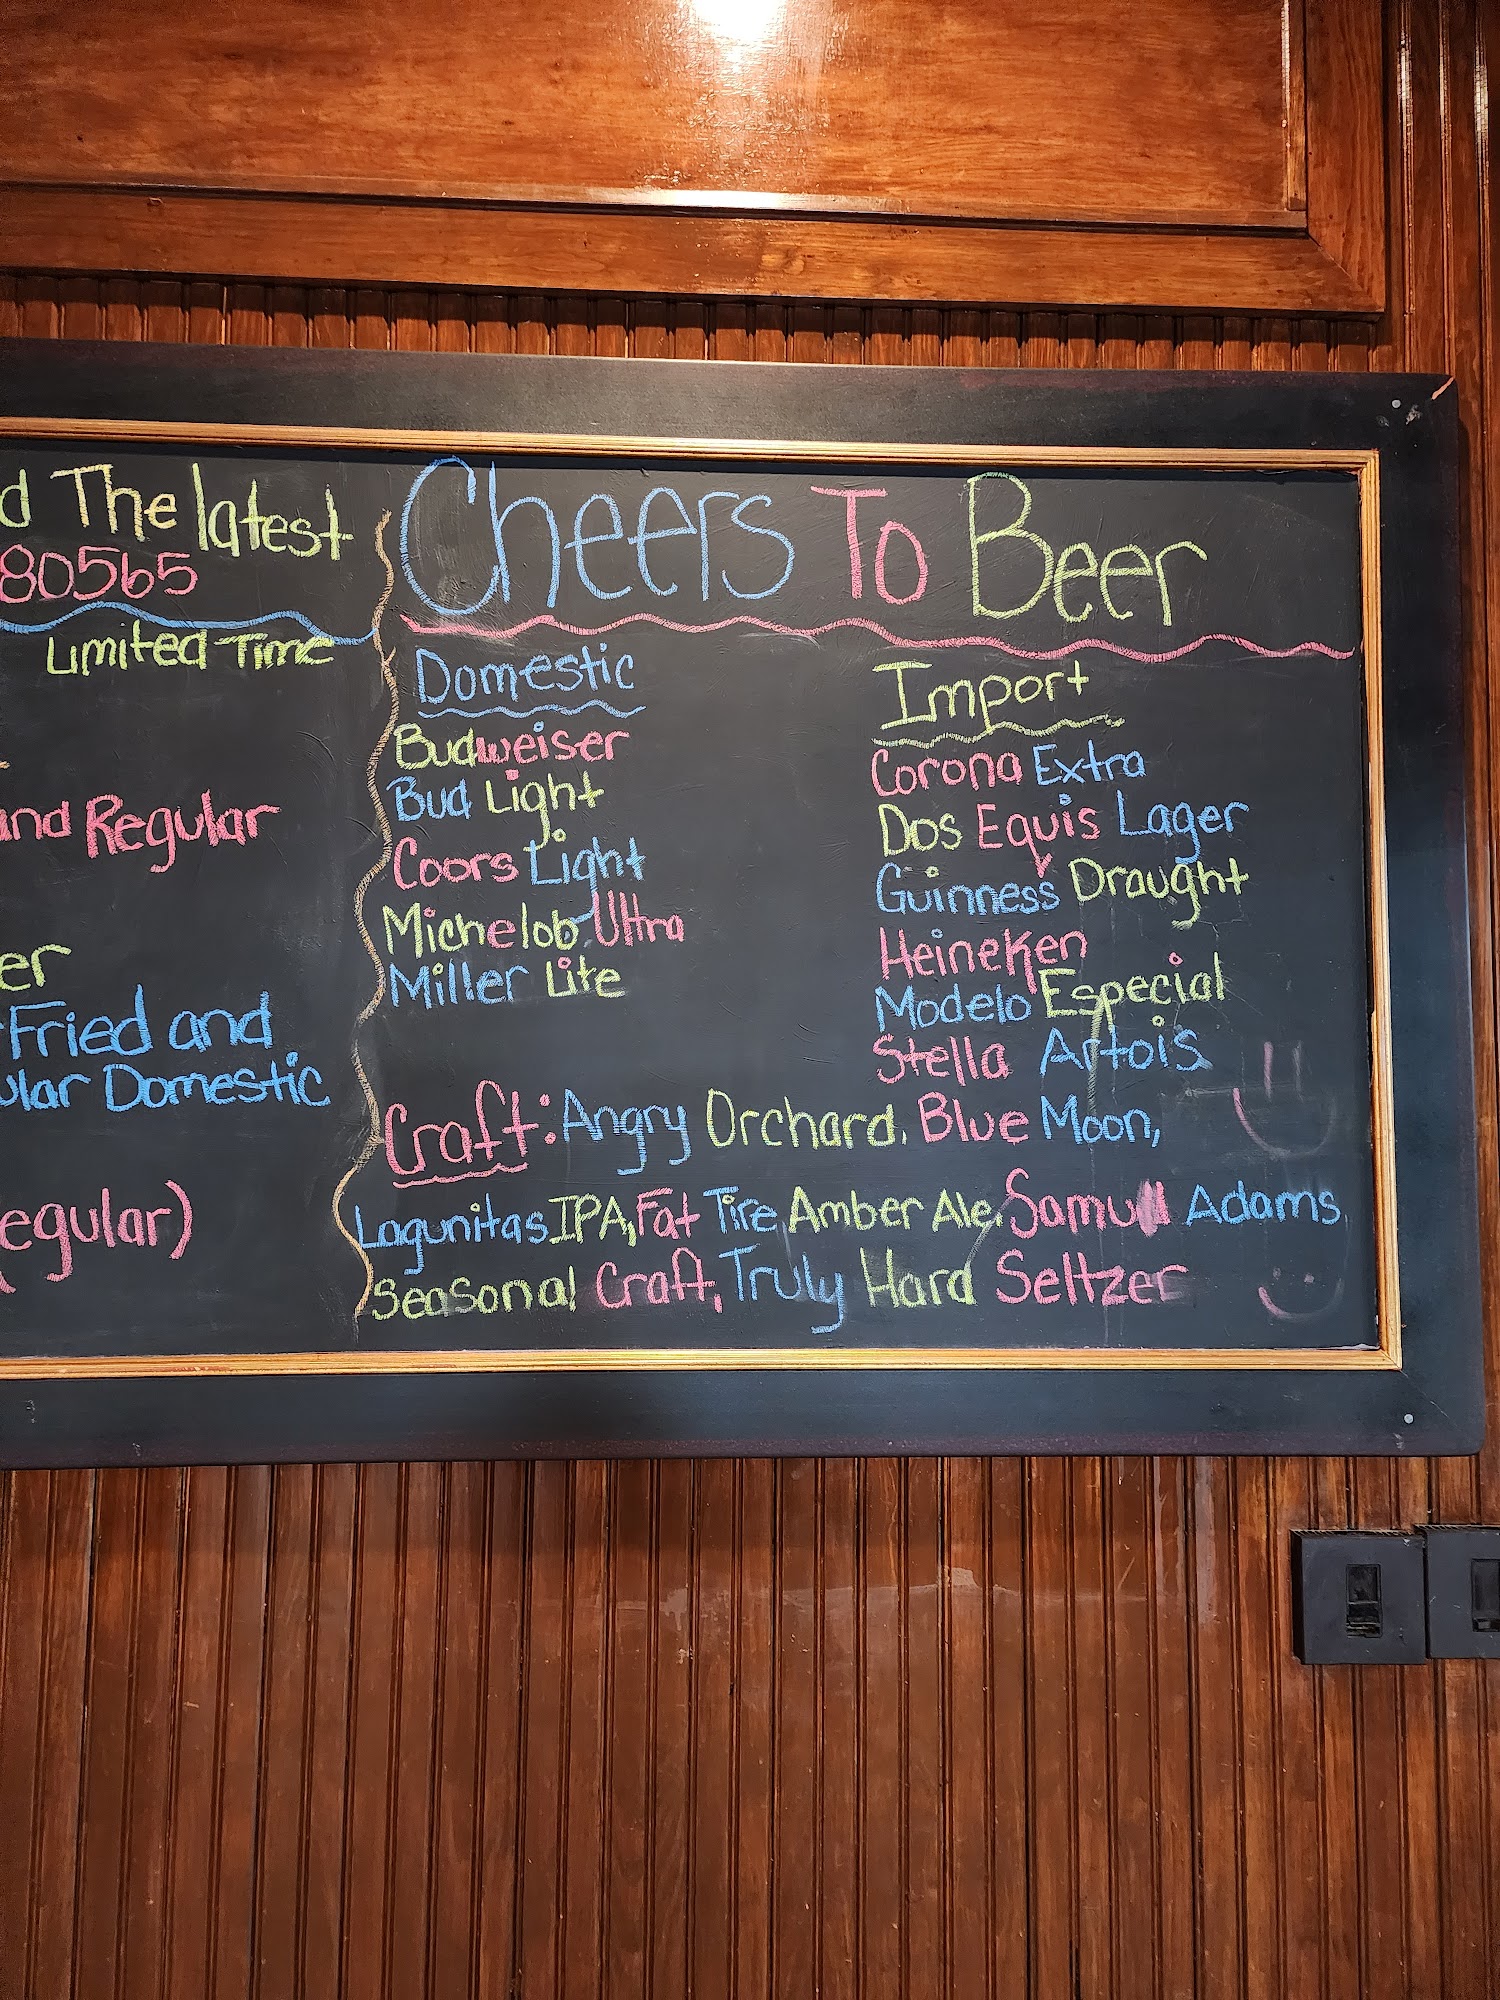 d The latest
80565
Limited Time
and Regular
er
Fried and
ular Domestic
egular)
Cheers To Beer
Domestic
Budweiser
Bud Light
Coors Light
Michelob Ultra
Miller Lite
Import
Corona Extra
Dos Equis Lager
Guinness Draught
Heineken
Modelo Especial
Stella Artois
Craft: Angry Orchard, Blue Moon,
Lagunitas IPA, Fat Tire Amber Ale, Samuel Adams,
Seasonal Craft, Truly Hard Seltzer